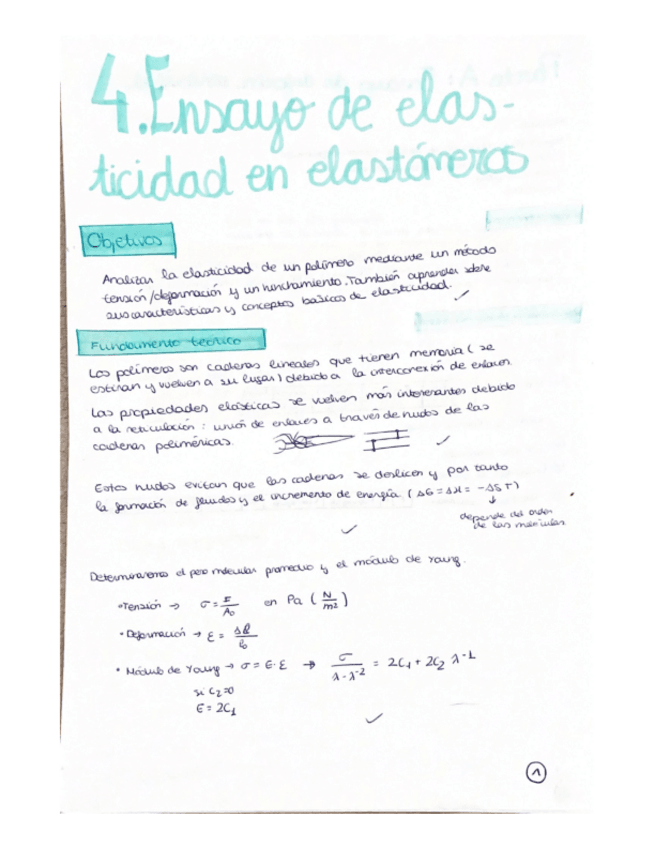 4. Ensayo de elas-
ticidad en elastómeros
Objetivos
Analizar la elasticidad de un polímero mediante un método
tensión/deformación y un hinchamiento. También aprender sobre
sus características y conceptos básicos de elasticidad.
Fundamento teórico
Los polímeros son cadenas lineales que tienen memoria (se
estiran y vuelven a su lugar) debido a la interconexión de enlaces.
Las propiedades elásticas se vuelven más interesantes debido
a la reticulación: unión de enlaces a través de nudos de las
cadenas poliméricas.
Estos nudos evitan que las cadenas se deslicen y por tanto
la formación de fluidos y el incremento de energía. (ΔG = ΔH = -ΔS T)
depende del orden
de las moléculas
Determinaremos el peso molecular promedio y el módulo de Young.
• Tensión → σ = F/A₀ en Pa (N/m²)
• Deformación → ε = Δl/l₀
• Módulo de Young → σ = E·ε → σ/(λ-λ⁻²) = 2C₁ + 2C₂ λ⁻¹
si C₂=0
E = 2C₁
1